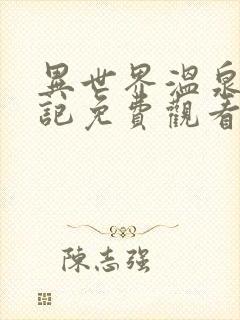 異世界溫泉
記免費觀看
陳志强